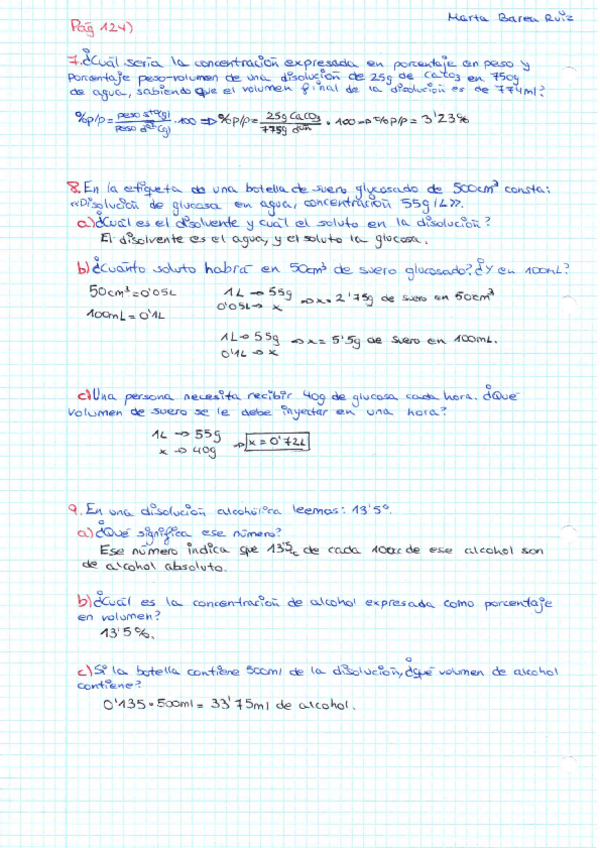 Marta Barea Ruiz
Pág 124)
7. ¿Cuál sería la concentración expresada en porcentaje en peso y
porcentaje peso-volumen de una disolución de 25g de CaCO3 en 750g
de agua, sabiendo que el volumen final de la disolución es de 774ml?
%p/p = peso sto(g) / peso dón(g) · 100 => %p/p = 25g CaCO3 / 775g dón · 100 -> %p/p = 3'23%
8. En la etiqueta de una botella de suero glucosado de 500cm³ consta:
«Disolución de glucosa en agua, concentración 55g/L».
a) ¿Cuál es el disolvente y cuál el soluto en la disolución?
El disolvente es el agua, y el soluto la glucosa.
b) ¿Cuánto soluto habrá en 50cm³ de suero glucosado? ¿Y en 100mL?
50cm³ = 0'05L 1L -> 55g
0'05L -> x => x = 2'75g de suero en 50cm³
100mL = 0'1L
1L -> 55g
0'1L -> x => x = 5'5g de suero en 100mL.
c) Una persona necesita recibir 40g de glucosa cada hora. ¿Qué
volumen de suero se le debe inyectar en una hora?
1L -> 55g
x -> 40g => x = 0'72L
9. En una disolución alcohólica leemos: 13'5º.
a) ¿Qué significa ese número?
Ese número indica que 13'5cc de cada 100cc de ese alcohol son
de alcohol absoluto.
b) ¿Cuál es la concentración de alcohol expresada como porcentaje
en volumen?
13'5%.
c) Si la botella contiene 500ml de la disolución, ¿qué volumen de alcohol
contiene?
0'135 · 500ml = 33'75ml de alcohol.